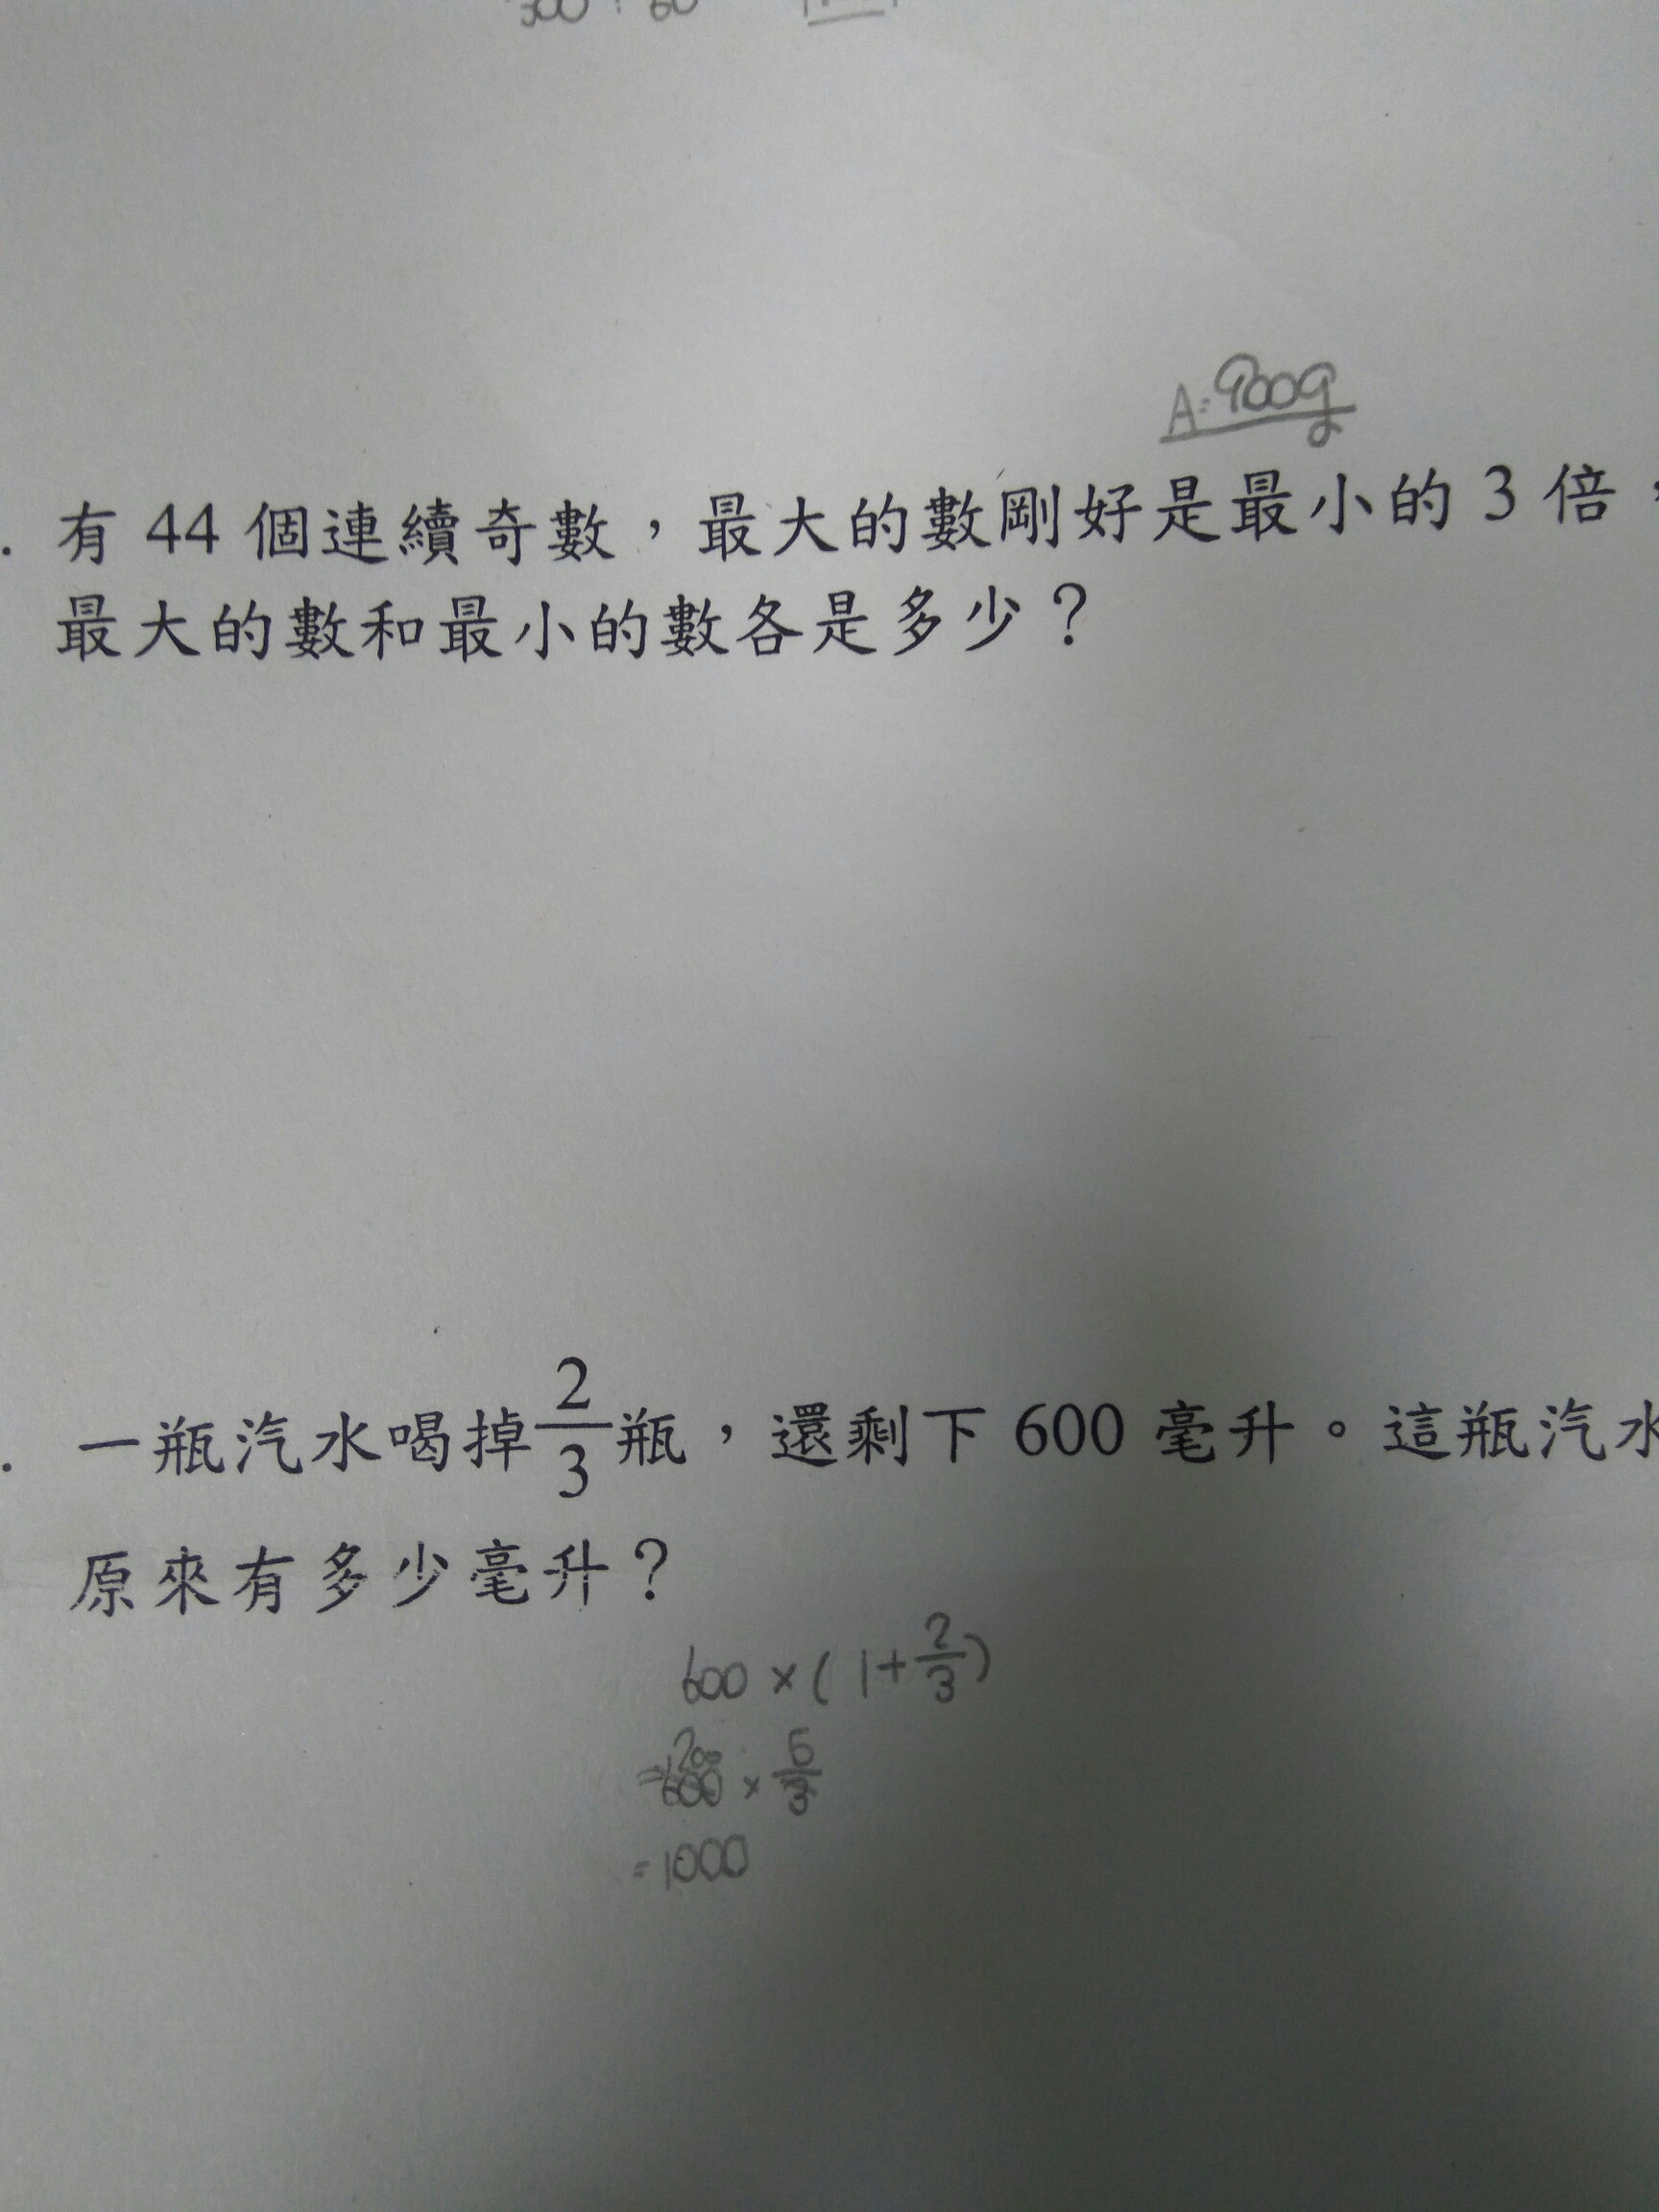 300 ÷ 60
A=900g
. 有 44 個連續奇數，最大的數剛好是最小的 3 倍，
最大的數和最小的數各是多少？
. 一瓶汽水喝掉2/3瓶，還剩下 600 毫升。這瓶汽水
原來有多少毫升？
600 × ( 1+2/3)
=200
600 × 5/3
=1000